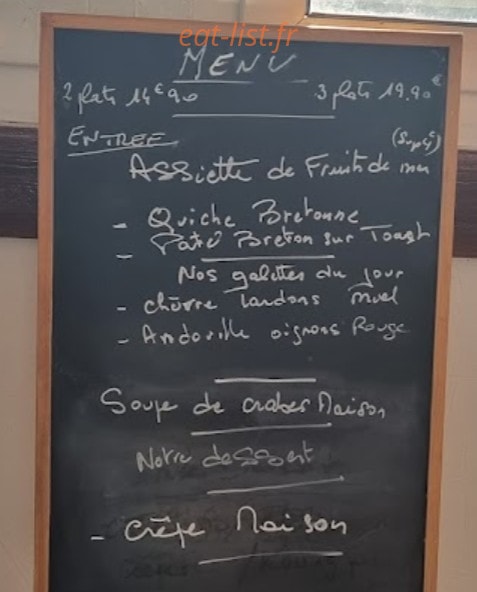 eat-list.fr
MENU
2 plats 14€90 3 plats 19.90€
ENTREE
Assiette de Fruits de mer
- Quiche Bretonne
- Paté Breton sur Toast
Nos galettes du jour
- chèvre lardons miel
- Andouille oignons Rouge
Soupe de crabes Maison
Notre dessert
- crêpe Maison